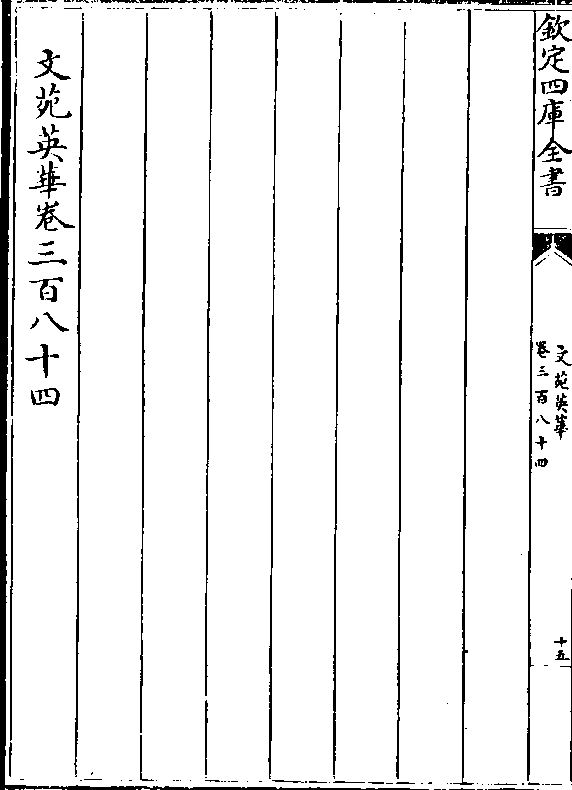 欽定四庫全書
文苑英華
卷三百八十四
十五
文苑英華卷三百八十四